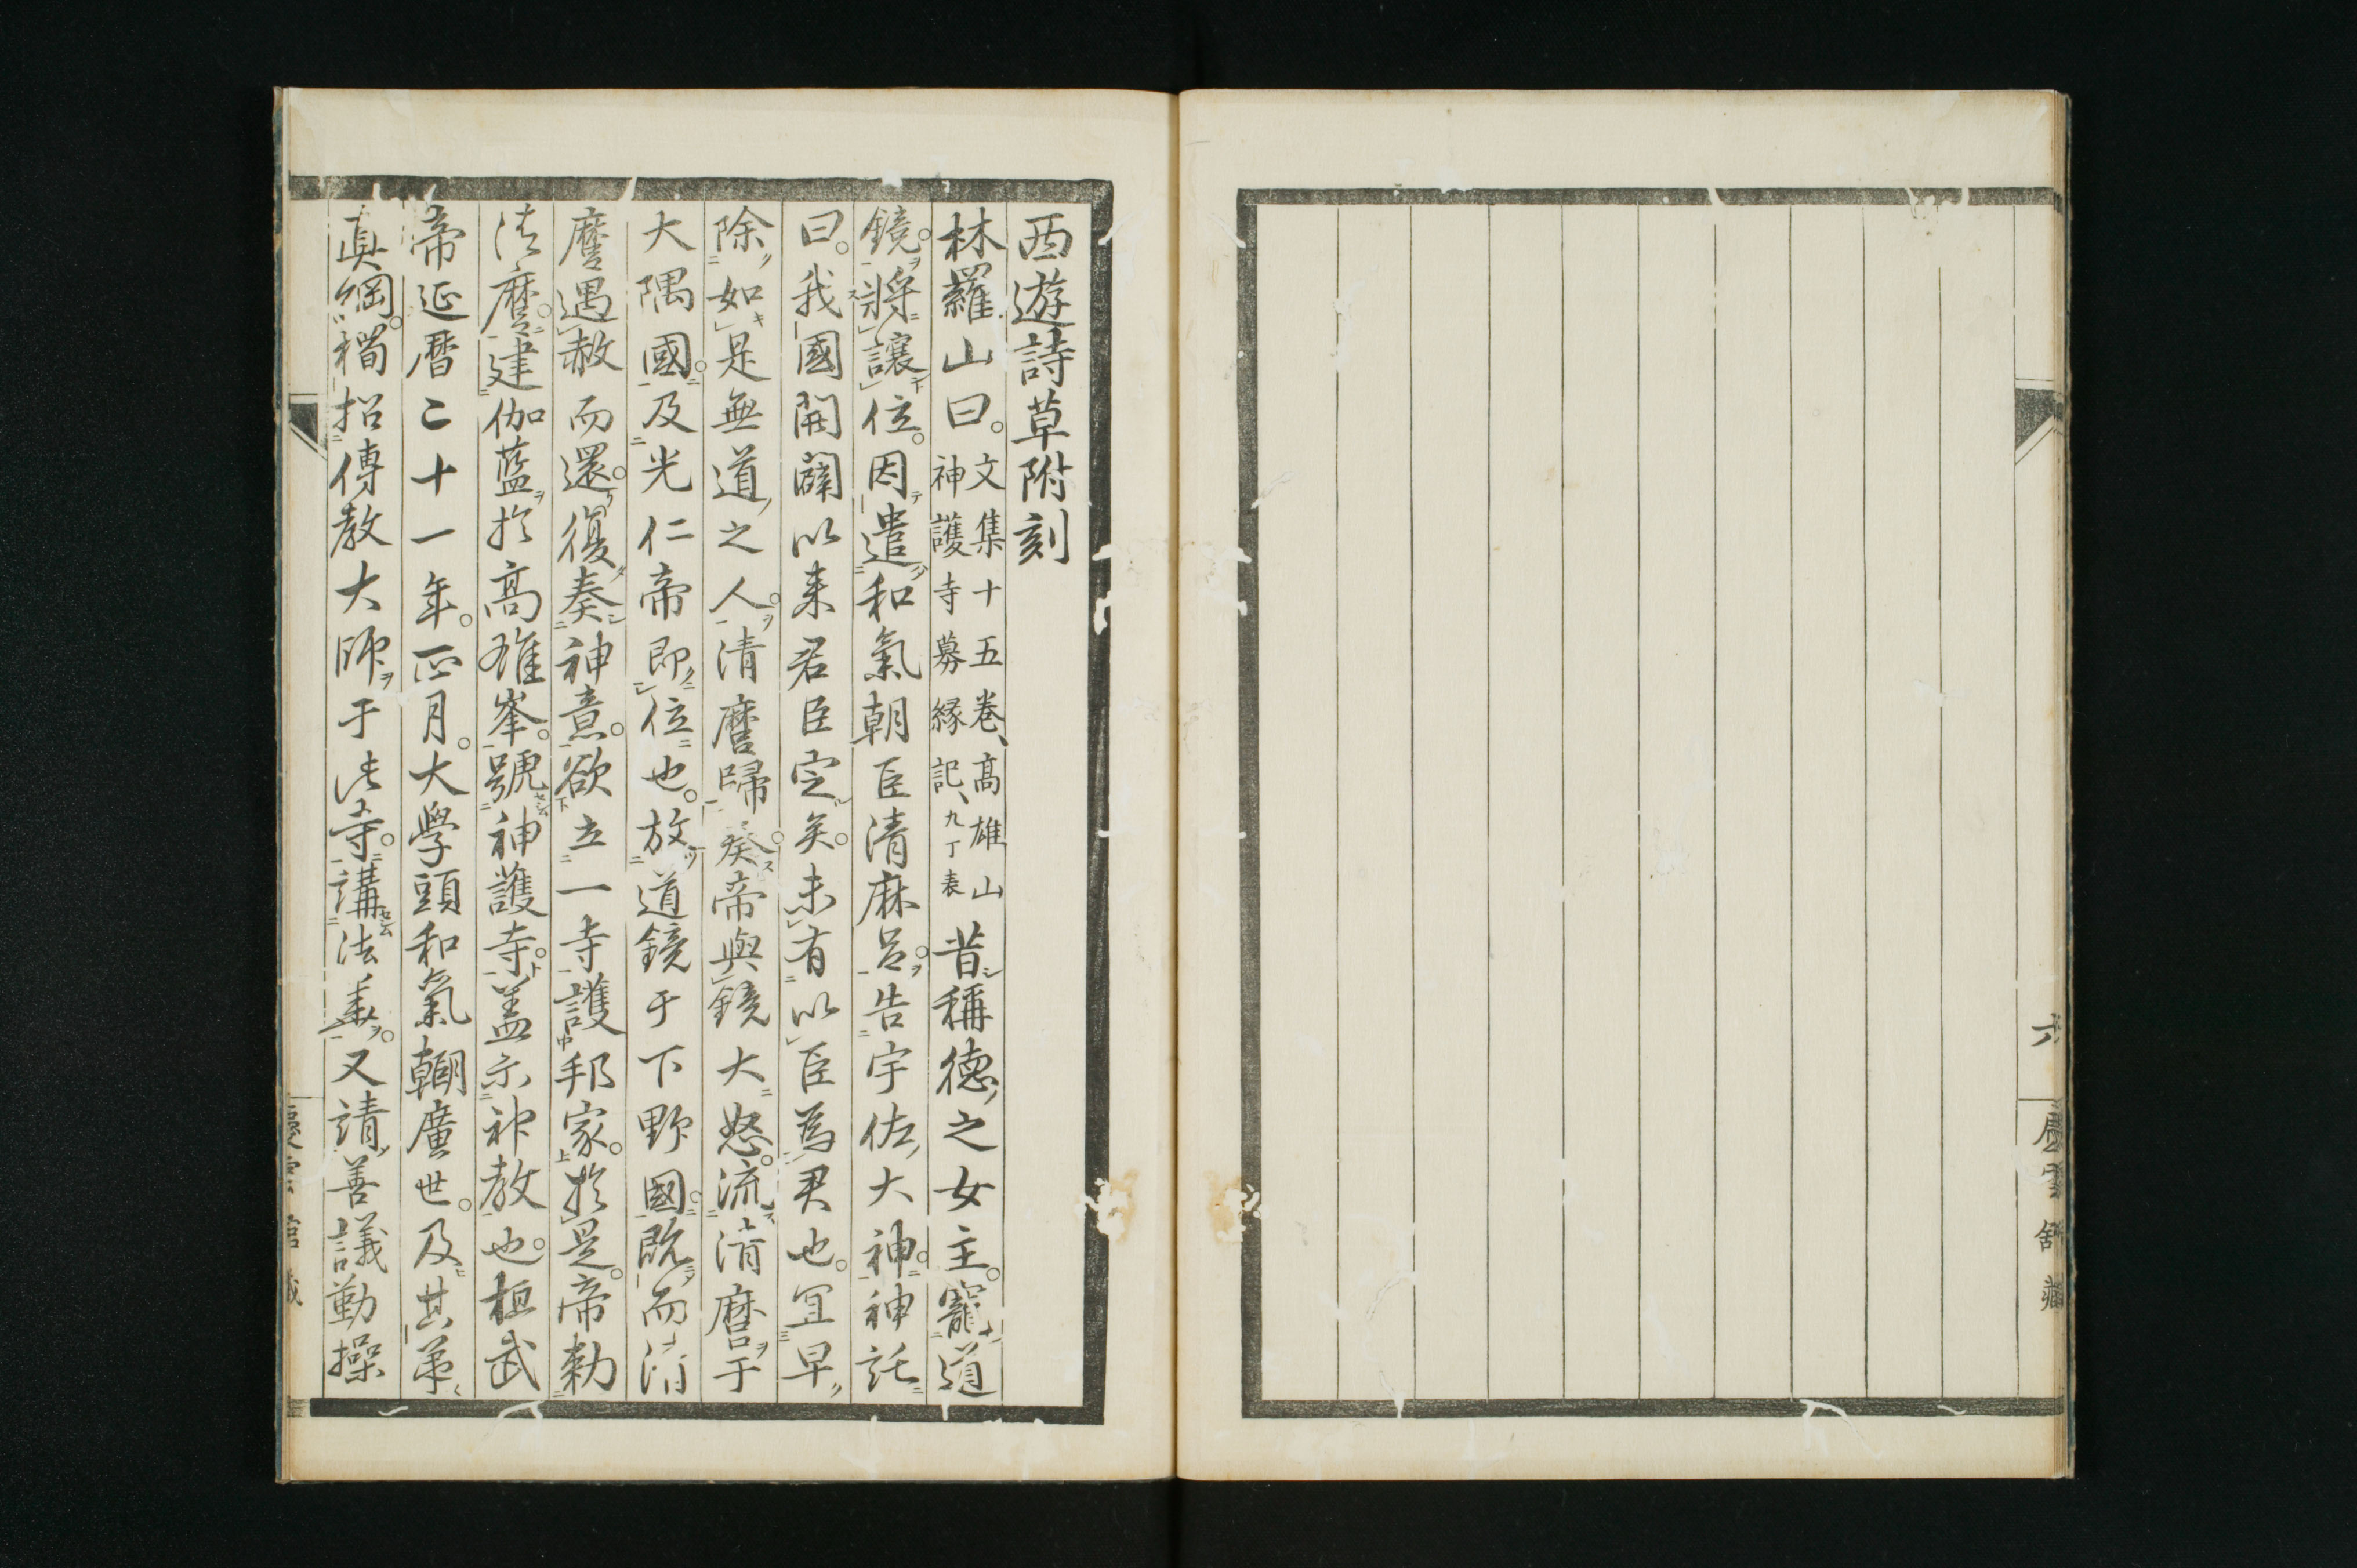 六
西遊詩草附刻
林羅山曰。文集十五卷、高雄山神護寺募縁記、九丁表昔稱德之女主。寵道
鏡。將讓位。因遣和氣朝臣清麻呂。告宇佐大神。神託
曰。我國開闢以来君臣定矣。未有以臣為君也。宜早
除如是無道之人。清麿歸癸。帝與鏡大怒。流清麿于
大隅國。及光仁帝即位也。放道鏡于下野國。既而清
麿遇赦而還。復奏神意。欲立一寺護邦家。於是。帝勅
清麿。建伽藍於高雄峯。號神護寺。盖示神教也。桓武
帝延暦二十一年。正月。大學頭和氣朝廣世。及其弟
眞綱。稽招傳教大師于此寺。講法華。又請善議勤操